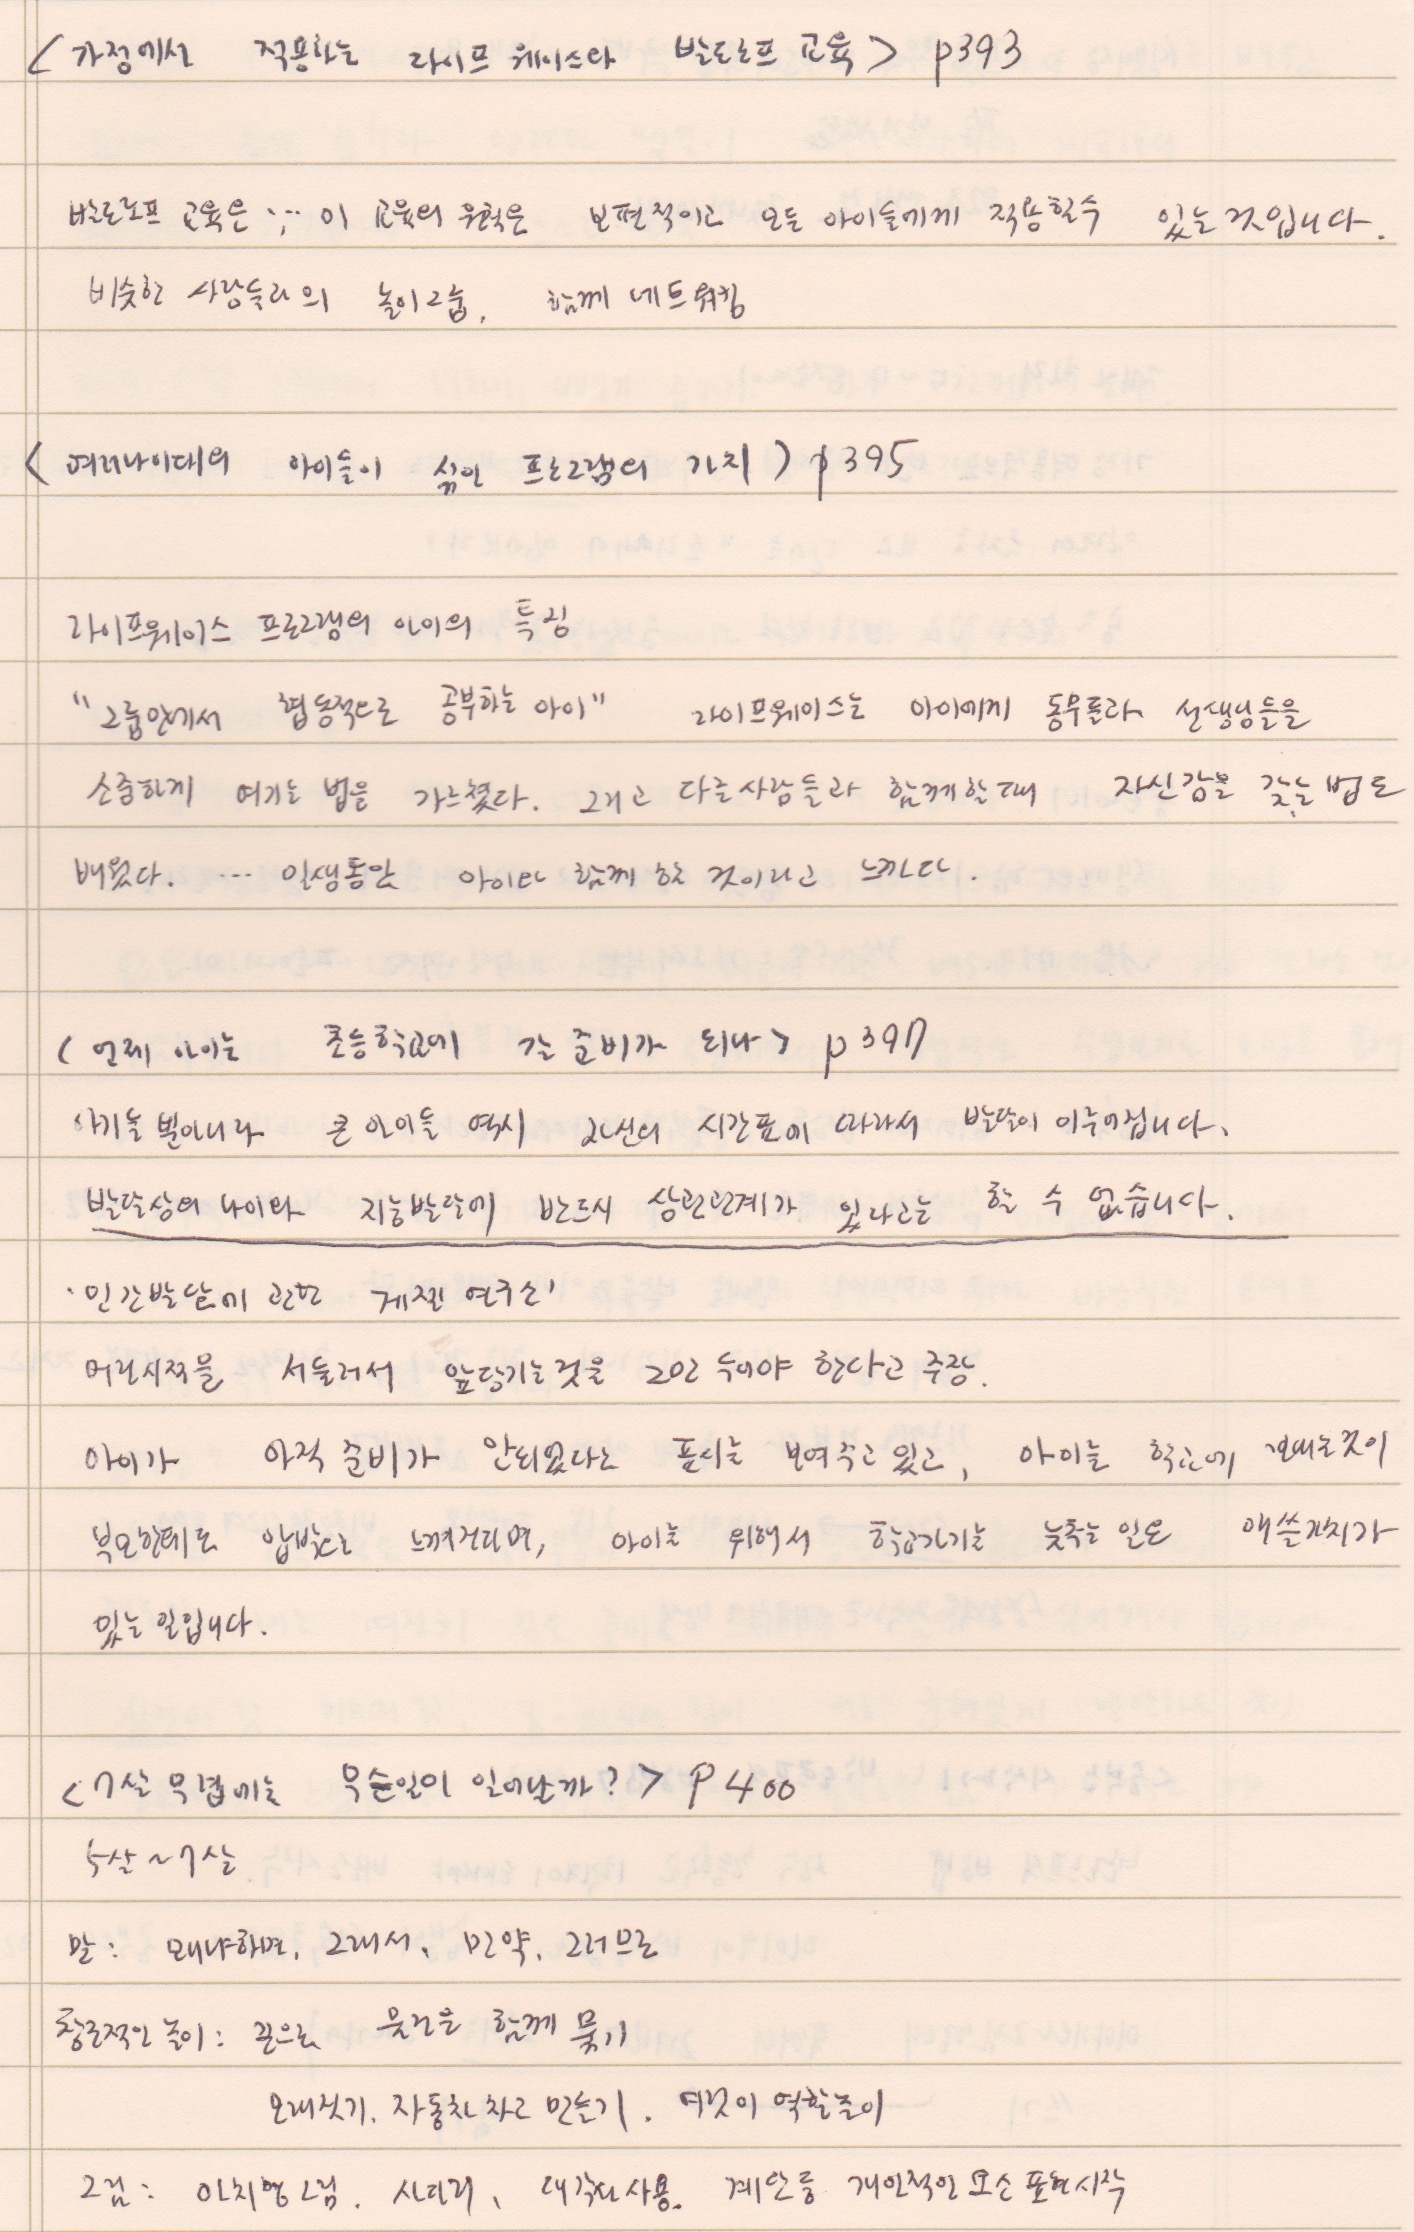 <가정에서 적용하는 라이프 웨이스와 발도르프 교육> p393
발도르프 교육은 ; … 이 교육의 원칙은 보편적이고 모든 아이들에게 적용할수 있는 것입니다.
비슷한 사람들과의 놀이그룹, 함께 네트워킹
<여러나이대의 아이들이 섞인 프로그램의 가치> p395
라이프웨이스 프로그램의 아이의 특징
"그룹안에서 협동적으로 공부하는 아이" 라이프웨이스는 아이에게 동무들과 선생님들을
소중하게 여기는 법을 가르쳤다. 그리고 다른사람들과 함께할때 자신감을 갖는 법도
배웠다. … 일생동안 아이와 함께 할 것이라고 느낀다.
<언제 아이는 초등학교에 갈 준비가 되나> p397
아기들 뿐아니라 큰 아이들 역시 자신의 시간표에 따라서 발달이 이루어집니다.
발달상의 나이와 지능발달에 반드시 상관관계가 있다고는 할 수 없습니다.
'인간발달에 관한 게젤 연구소'
어린시절을 서둘러서 앞당기는것을 그만 두어야 한다고 주장.
아이가 아직 준비가 안되었다는 표시를 보여주고 있고, 아이를 학교에 보내는것이
부모한테도 압박으로 느껴진다면, 아이를 위해서 학교가기를 늦추는 일은 애쓸가치가
있는 일입니다.
<7살 무렵에는 무슨일이 일어날까?> P400
5살~7살
말: 왜냐하면, 그래서, 만약, 그러므로
창조적인 놀이: 끈으로 물건을 함께 묶기
모래짓기, 자동차 차고 만들기, 여럿이 역할놀이
그림: 이치형그림, 사다리, 대각선사용, 계단 등 개인적인 요소 표현시작